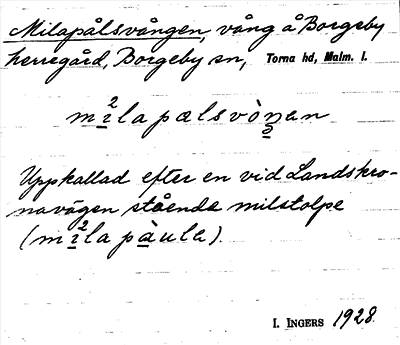 Milapålsvången, vång å Borgeby
herregård, Borgeby sn, Torna hd, Malm. l.
mi²lapælsvòŋan
Uppkallad efter en vid Landskro-
navägen stående milstolpe
(mi²la pàula).
I. INGERS 1928